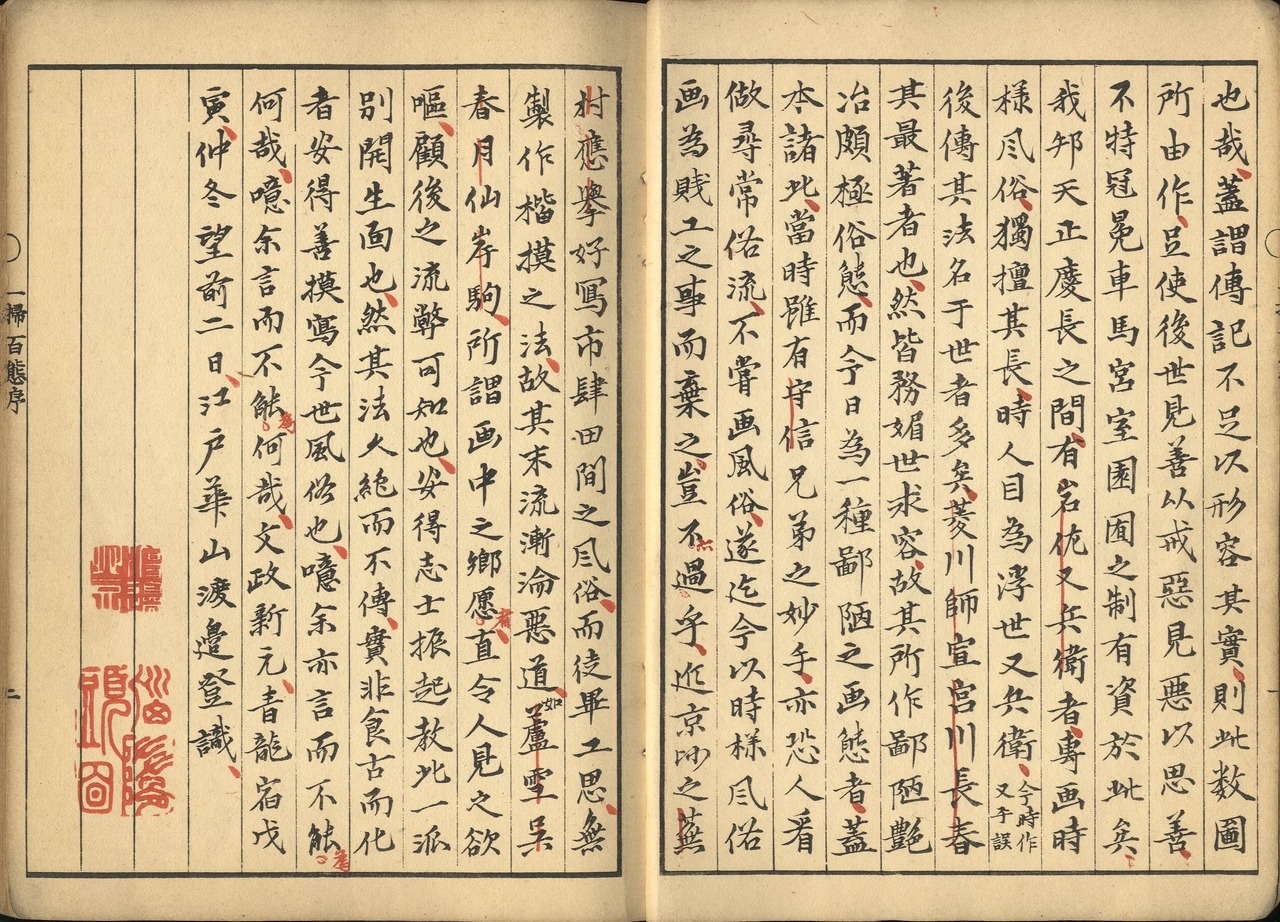 也哉蓋謂傳記不足以形容其實則此数圖
所由作豈使後世見善以戒惡見悪以思善
不特冠冕車馬宮室園囿之制有資於此矣
我邦天正慶長之間有岩佐又兵衛者專画時
様凮俗獨擅其長時人目為浮世又兵衛今時作又平誤
後傳其法名于世者多矣菱川師宣宮川長春
其最著者也然皆務媚世求容故其所作鄙陋艷
冶頗極俗態而今日為一種鄙陋之画態者蓋
本諸此當時雖有守信兄弟之妙手亦恐人看
做尋常俗流不嘗画風俗遂迄今以時様凮俗
画為賎工之事而棄之豈不亦過乎近京師之蕪
村應擧好寫市肆田間之凮俗而徒畢工思無
製作楷摸之法故其末流漸淪惡道如蘆雪呉
春月仙岸駒所謂画中之鄉愿者直令人見之欲
嘔顧後之流弊可知也安得志士振起教此一派
別開生面也然其法久絶而不傳實非食古而化
者安得善摸寫今世風俗也噫余亦言而不能為
何哉噫余言而不能為何哉文政新元青龍宿戊
寅仲冬望前二日江戸華山渡邉登識
一掃百態序
二